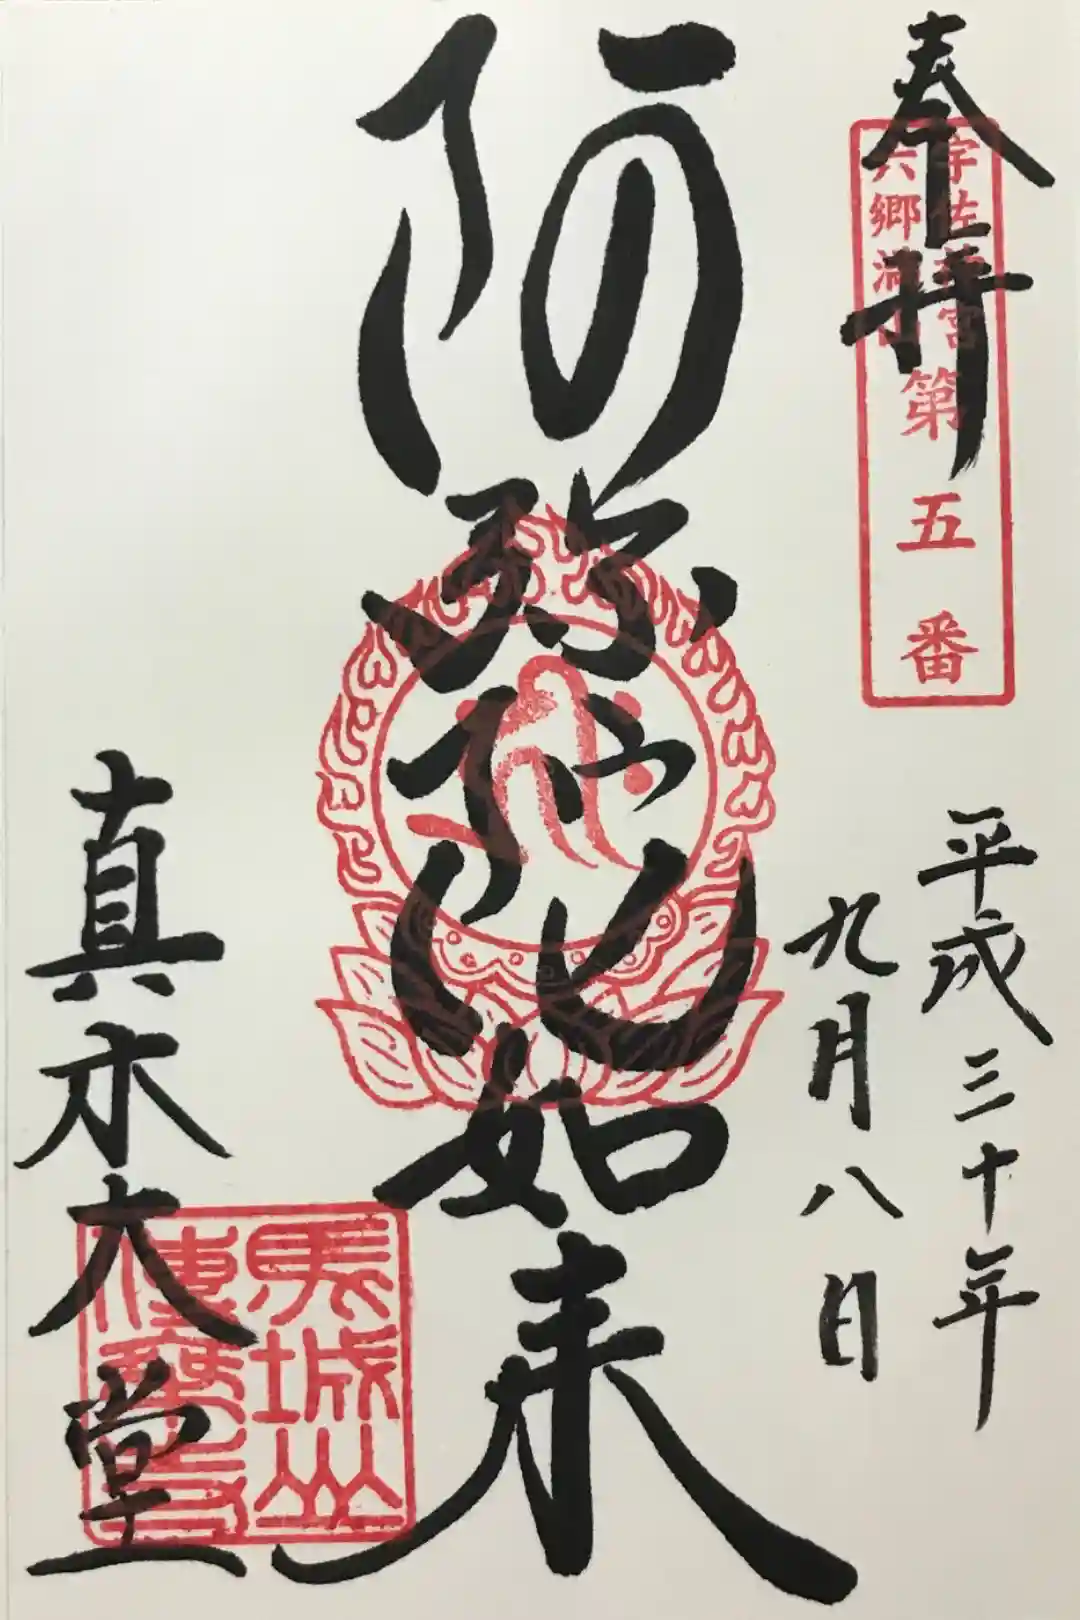 奉拝
宇佐神宮
六郷満山
第五番
平成三十年
九月八日
阿弥陀如来
真木大堂
馬城山
傳乗寺